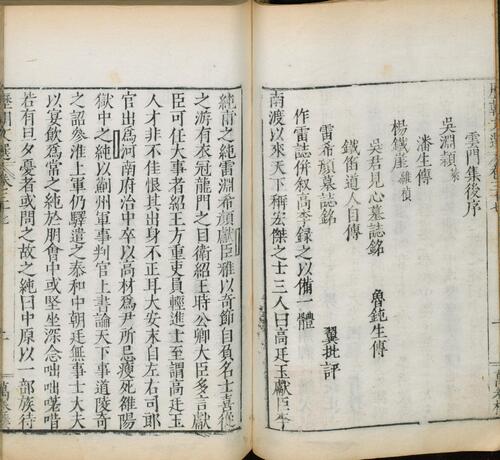 雲門集後序
吳淵穎萊
潘生傳
楊鐵崖維楨
吳君見心墓誌銘　魯鈍生傳
鐵笛道人自傳
雷希顏墓誌銘
作雷誌併叙高李録之以備一體　翼批評
南渡以來天下稱宏傑之士三人曰高廷玉獻臣李
純甫之純雷淵希顏獻臣雅以奇節自負名士喜從
之游有衣冠龍門之目衛紹王時公卿大臣多言獻
臣可任大事者紹王方重吏員輕進士至謂高廷玉
人才非不佳恨其出身不正耳大安末自左右司郎
官出爲河南府治中卒以高材爲尹所忌瘐死雒陽
獄中之純以薊州軍事判官上書論天下事道陵奇
之詔參淮上軍仍驛遣之泰和中朝廷無事士大夫
以宴飲爲常之純於朋會中或堅坐深念咄咄嗟唶
若有旦夕憂者或問之故之純曰中原以一部族待
歷朝文選